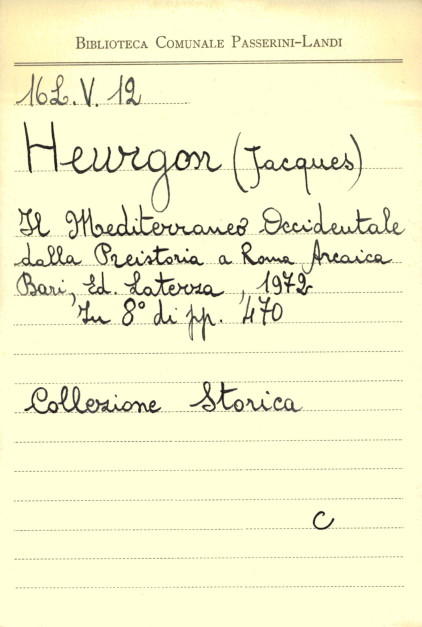 BIBLIOTECA COMUNALE PASSERINI-LANDI
16L.V. 12
Heurgon (Jacques)
Il Mediterraneo Occidentale
dalla Preistoria a Roma Arcaica
Bari, Ed. Laterza, 1972
In 8° di pp. 470
Collezione Storica
C